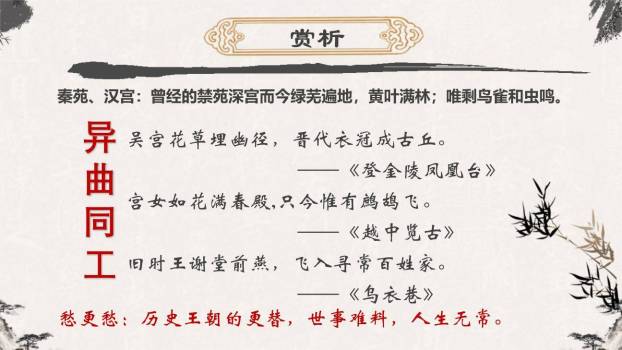 赏析
秦苑、汉宫：曾经的禁苑深宫而今绿芜遍地，黄叶满林；唯剩鸟雀和虫鸣。
异曲同工
吴宫花草埋幽径，晋代衣冠成古丘。
——《登金陵凤凰台》
宫女如花满春殿,只今惟有鹧鸪飞。
——《越中览古》
旧时王谢堂前燕，飞入寻常百姓家。
——《乌衣巷》
愁更愁：历史王朝的更替，世事难料，人生无常。